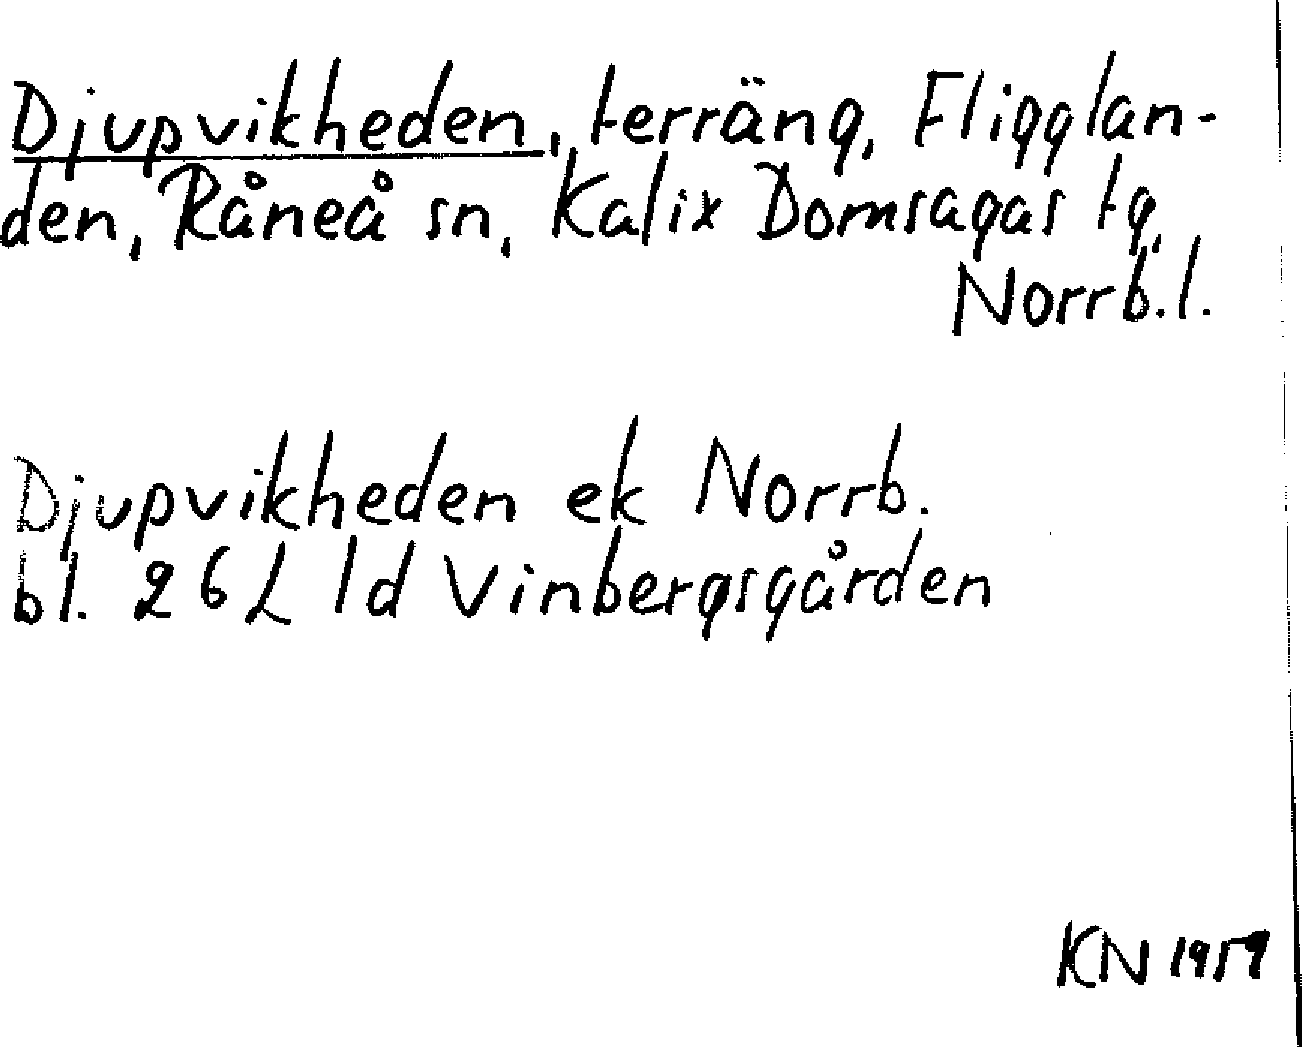 Djupvikheden, terräng, Fligglan-
den, Råneå sn, Kalix Domsagas tg,
Norrb.l.
Djupvikheden ek Norrb.
bl. 26L 1d Vinbergsgården
KN 1959